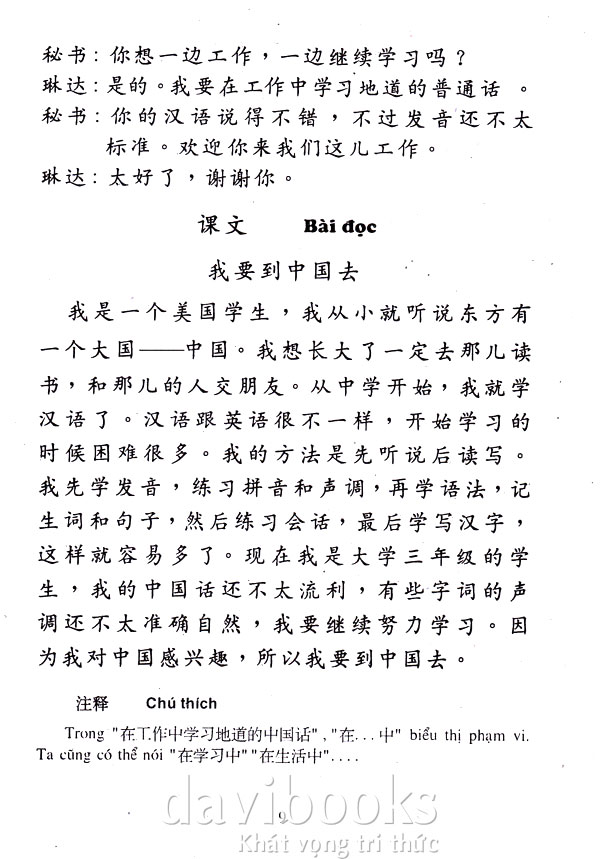 秘书: 你想一边工作，一边继续学习吗？
琳达: 是的。我要在工作中学习地道的普通话 。
秘书: 你的汉语说得不错，不过发音还不太
标准。欢迎你来我们这儿工作。
琳达: 太好了，谢谢你。
课文 Bài đọc
我要到中国去
我是一个美国学生，我从小就听说东方有
一个大国——中国。我想长大了一定去那儿读
书，和那儿的人交朋友。从中学开始，我就学
汉语了。汉语跟英语很不一样，开始学习的
时候困难很多。我的方法是先听说后读写。
我先学发音，练习拼音和声调，再学语法，记
生词和句子，然后练习会话，最后学写汉字，
这样就容易多了。现在我是大学三年级的学
生，我的中国话还不太流利，有些字词的声
调还不太准确自然，我要继续努力学习。因
为我对中国感兴趣，所以我要到中国去。
注释 Chú thích
Trong "在工作中学习地道的中国话", "在...中" biểu thị phạm vi.
Ta cũng có thể nói "在学习中" "在生活中"....
davibooks
9
Khát vọng tri thức